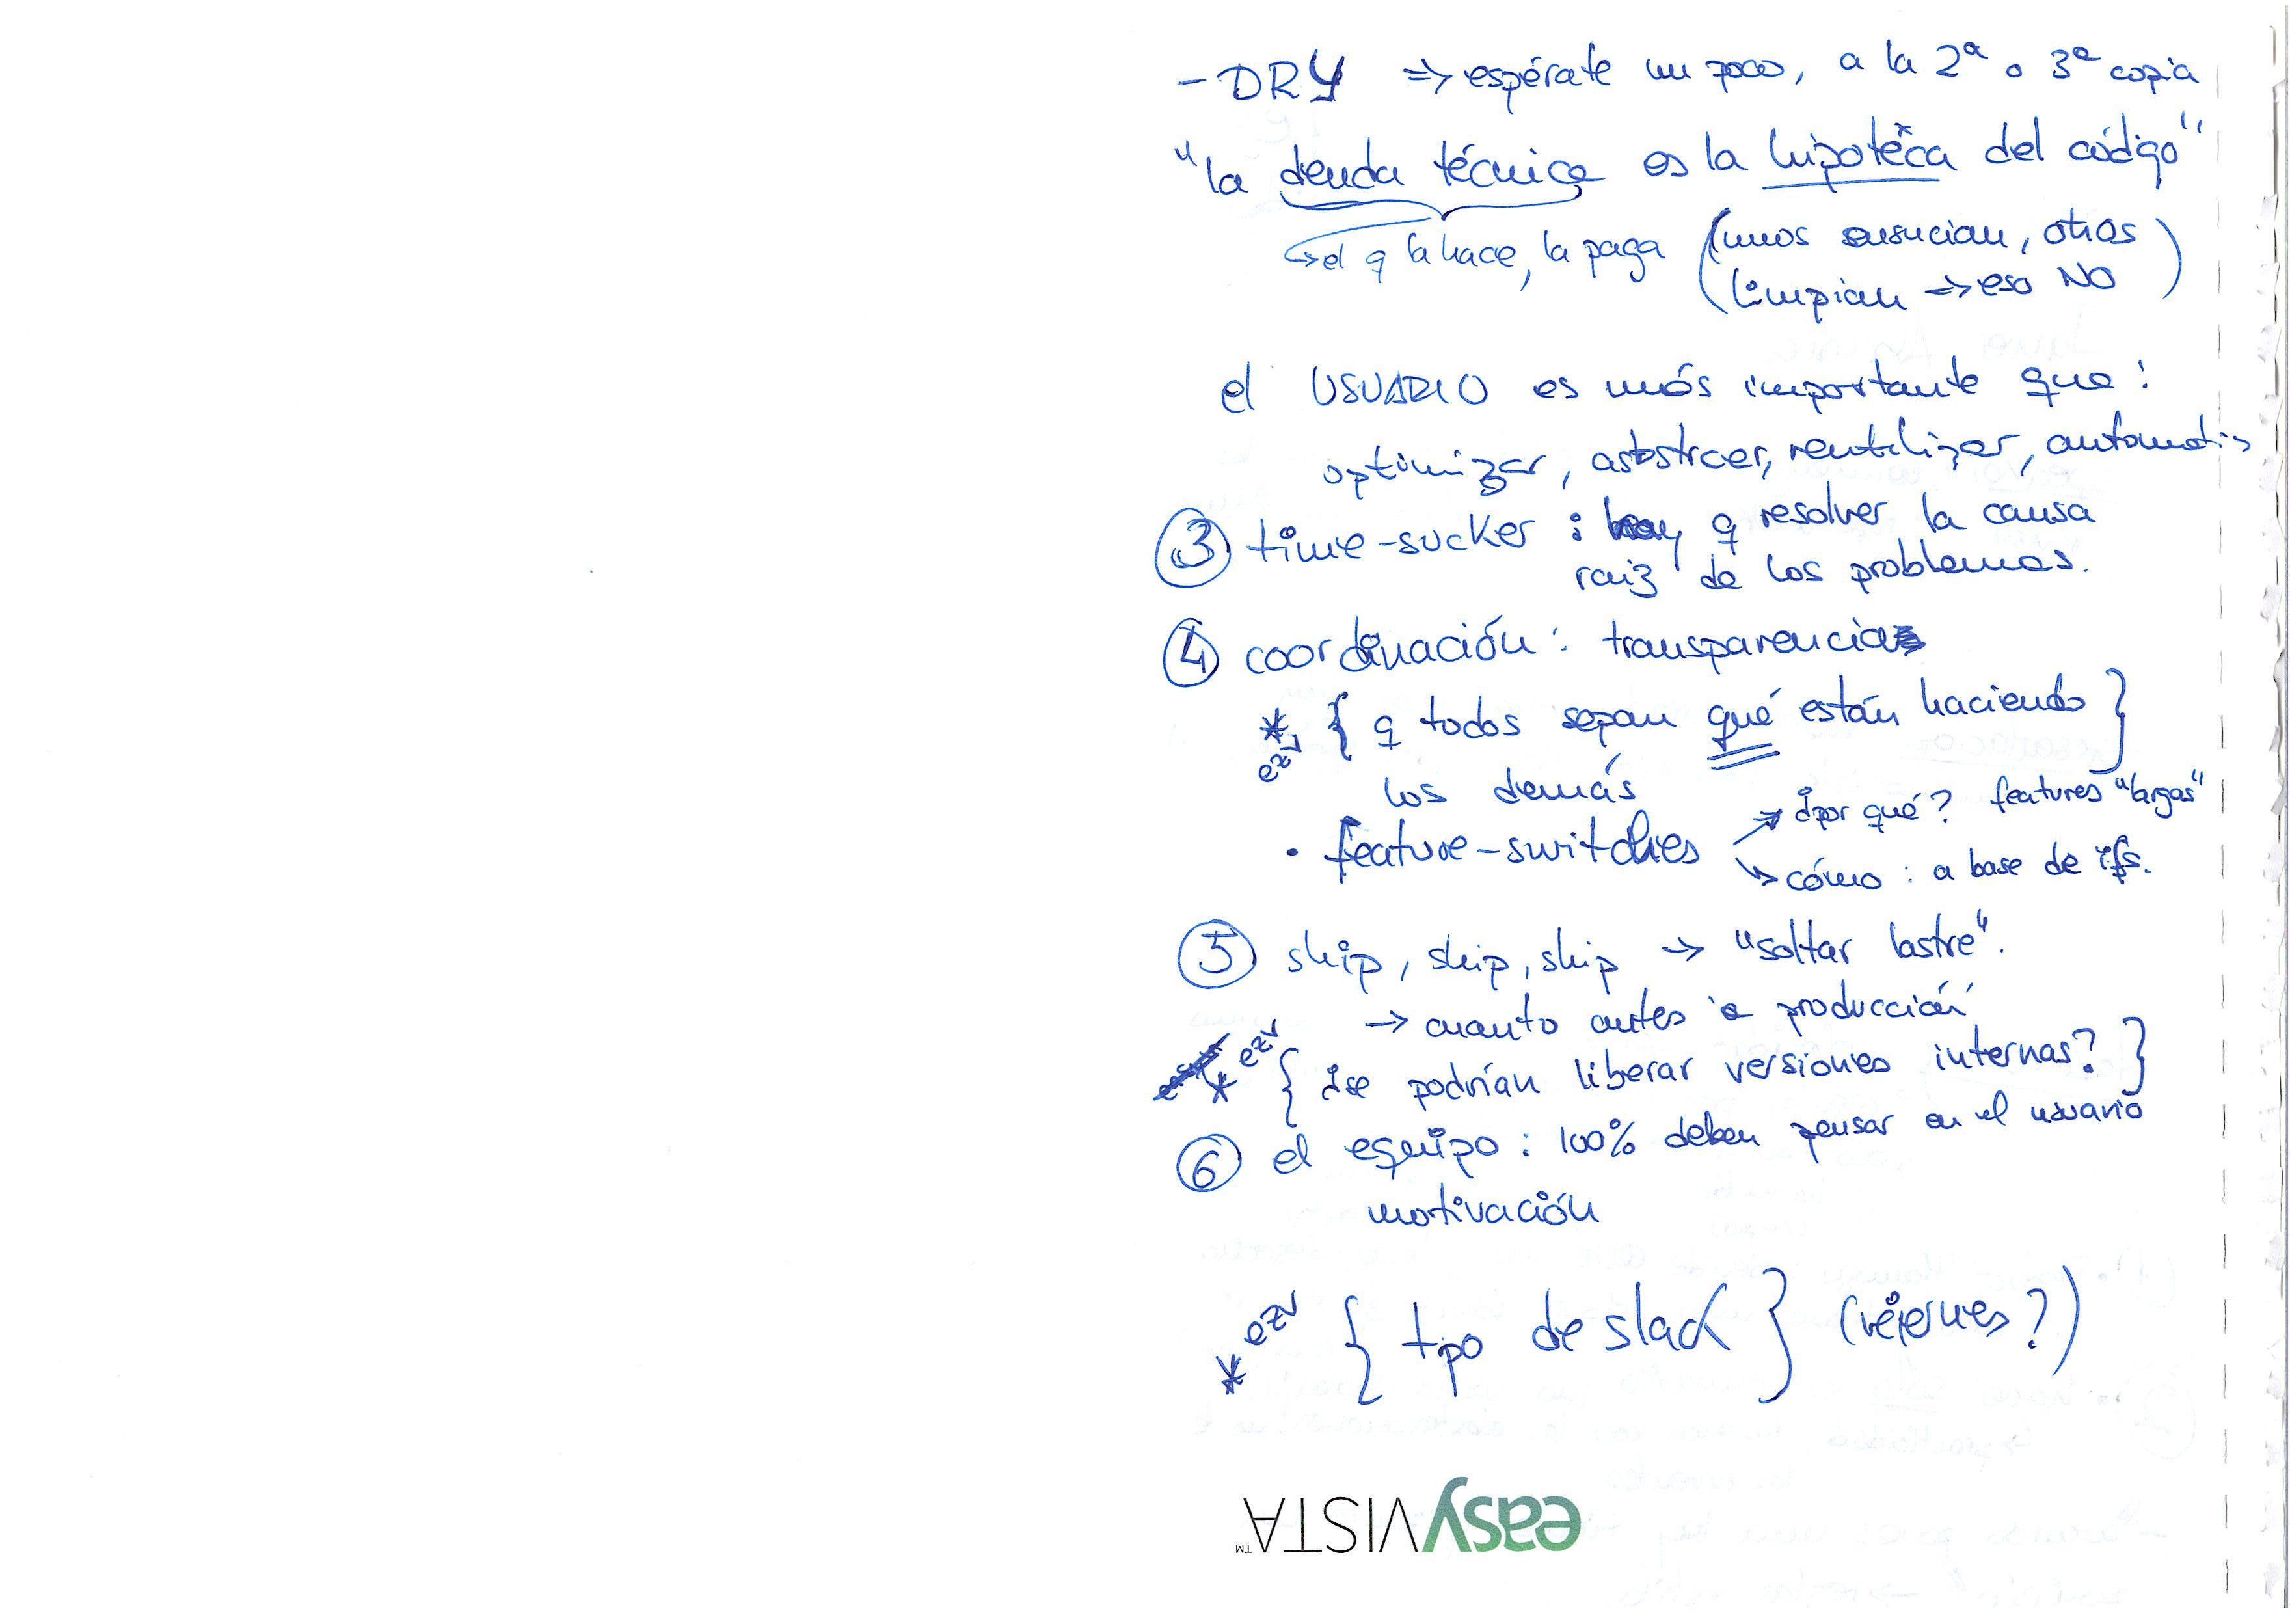 - DRY => espérate un poco, a la 2ª o 3ª copia
"la deuda técnica es la hipoteca del código"
↳ el q la hace, la paga (unos ensucian, otros
limpian => eso NO)
el USUARIO es más importante que:
optimizar, abstraer, reutilizar, automatiz
③ time-sucker : hay q resolver la causa
raiz de los problemas.
④ coordinación : transparencia
* ezv { q todos sepan qué están haciendo }
los demás
· feature-switches → ¿por qué? features "largas"
↘ cómo : a base de ifs.
⑤ ship, ship, ship → "soltar lastre".
→ cuanto antes a producción
* ezv { ¿se podrían liberar versiones internas? }
⑥ el equipo : 100% deben pensar en el usuario
motivación
* ezv { tpo de slack } (viernes?)
easyVISTA™